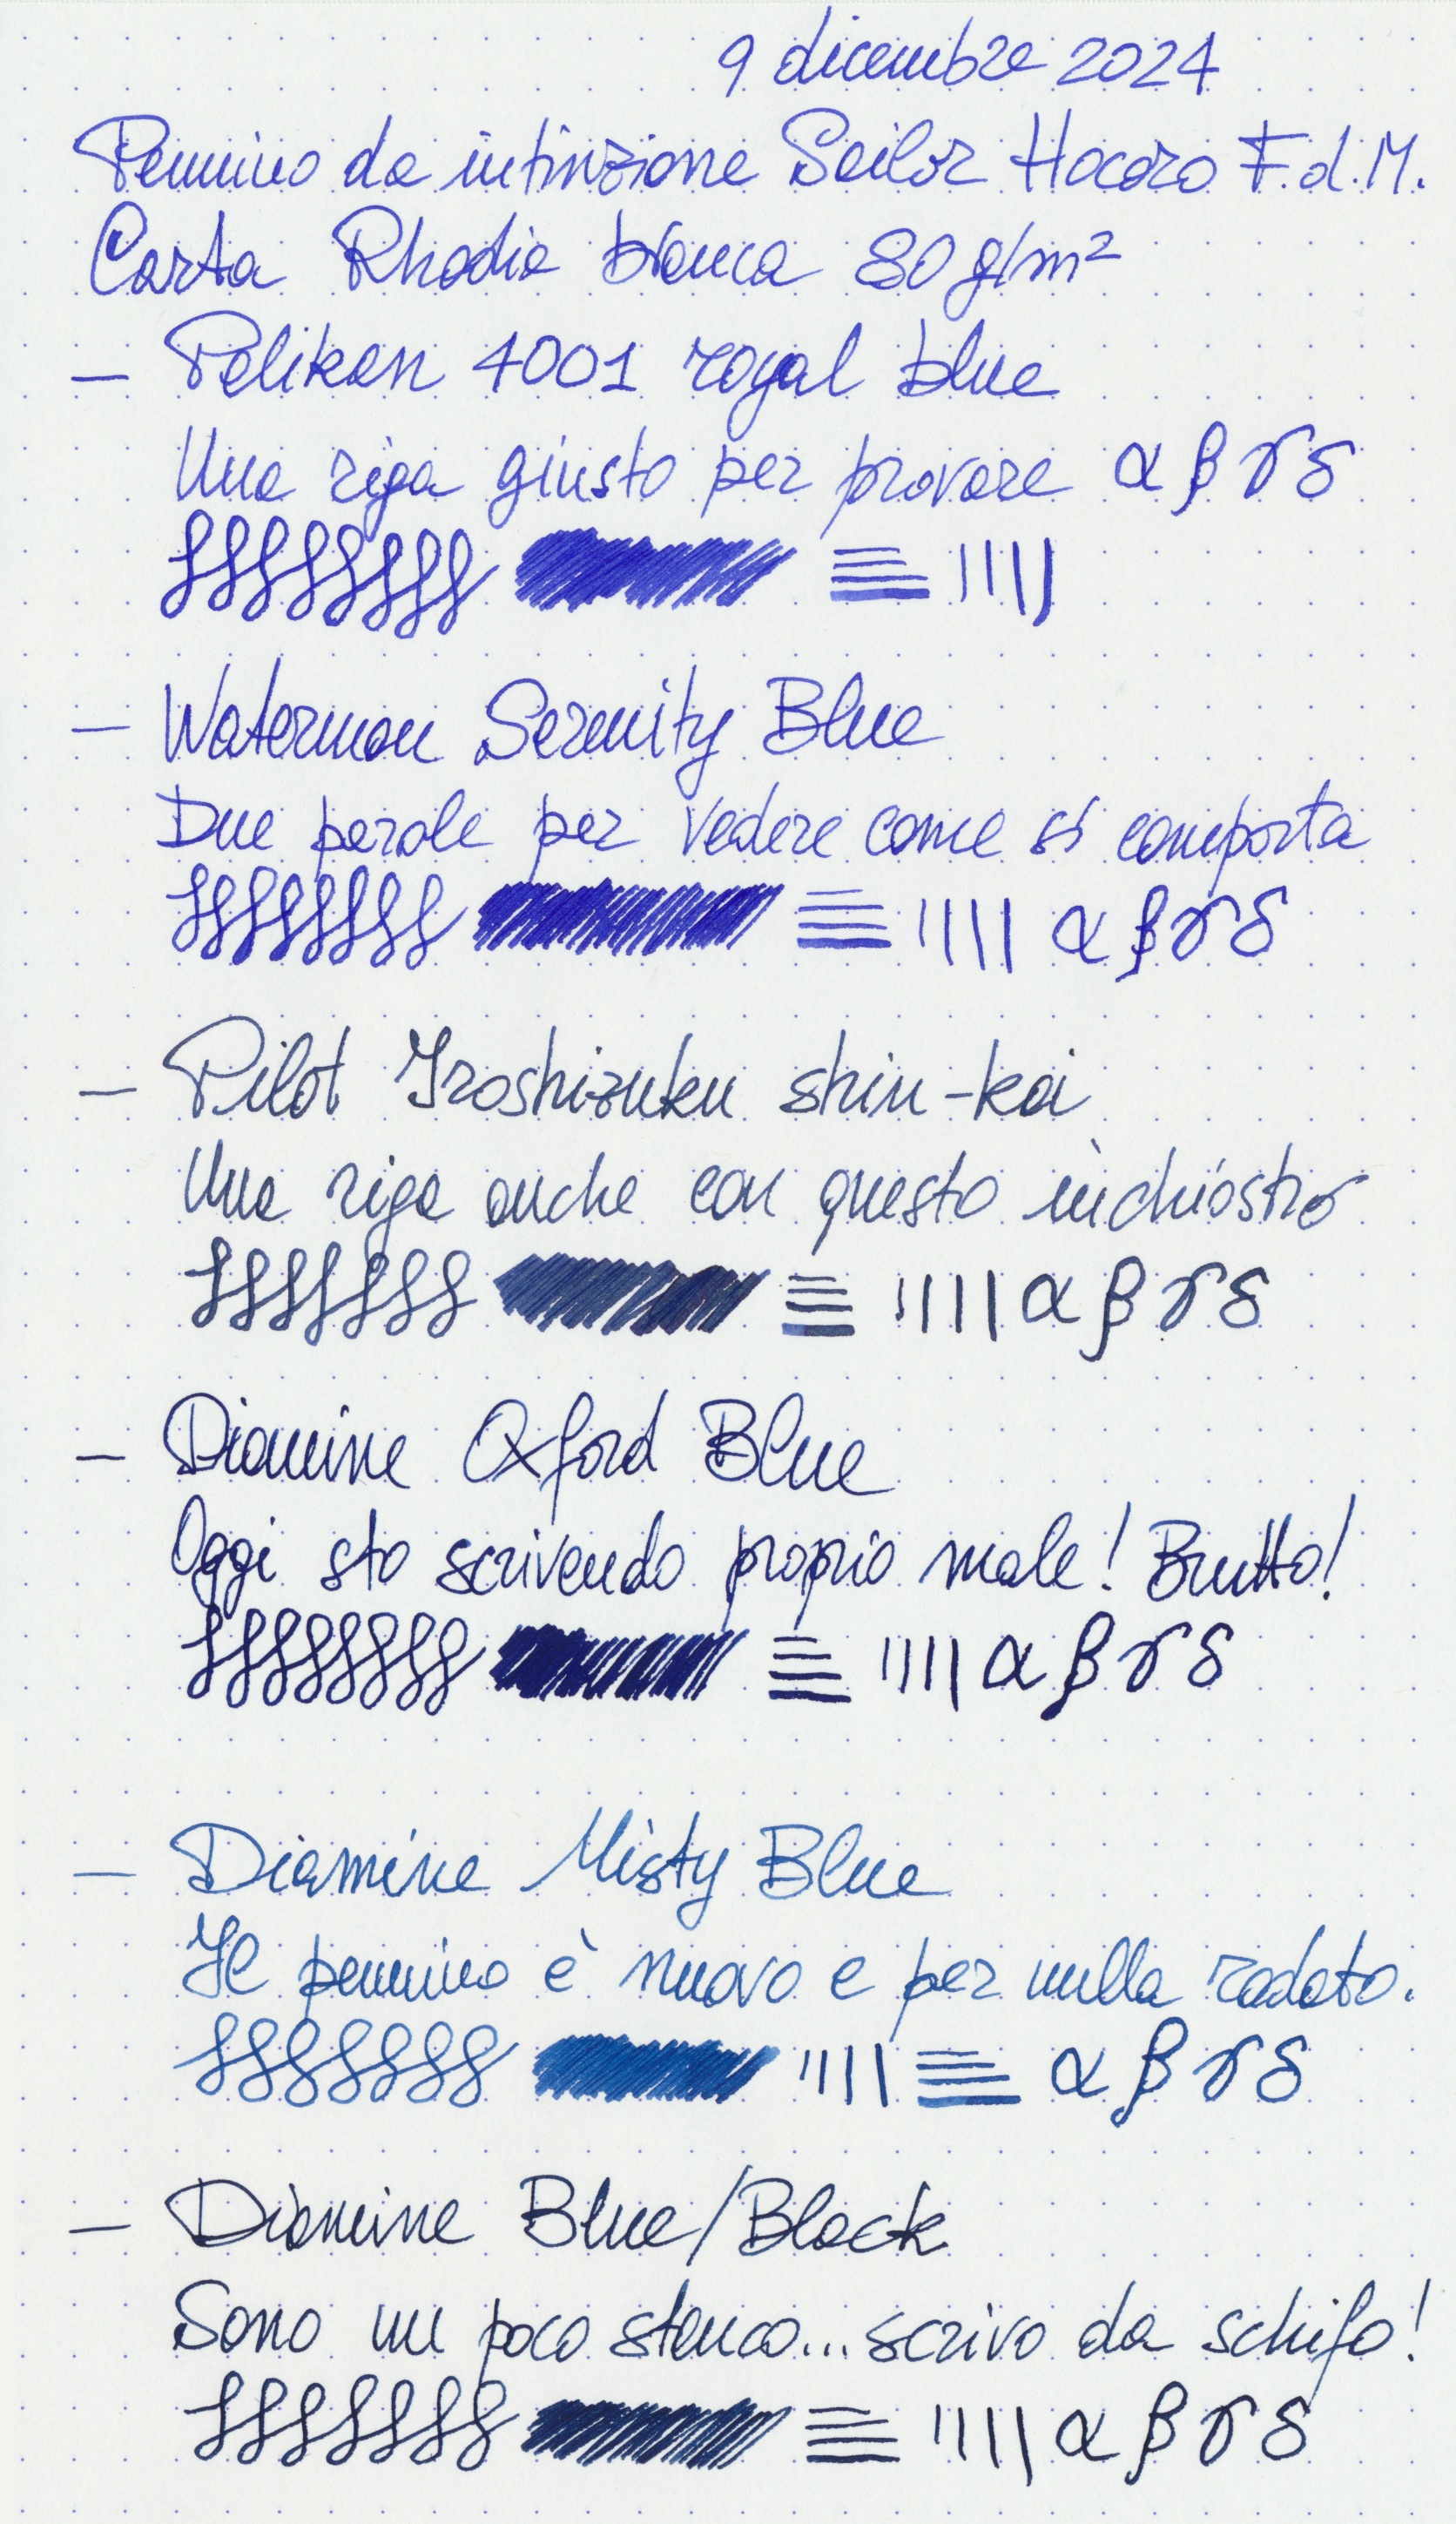 9 dicembre 2024
Pennino da intinzione Sailor Hocoro F.d.M.
Carta Rhodia bianca 80 g/m²
— Pelikan 4001 royal blue
Una riga giusto per provare α β γ δ
— Waterman Serenity Blue
Due parole per vedere come si comporta
α β γ δ
— Pilot Iroshizuku shin-kai
Una riga anche con questo inchiostro
α β γ δ
— Diamine Oxford Blue
Oggi sto scrivendo proprio male! Brutto!
α β γ δ
— Diamine Misty Blue
Il pennino è nuovo e per nulla rodato.
α β γ δ
— Diamine Blue/Black
Sono un poco stanco... scrivo da schifo!
α β γ δ